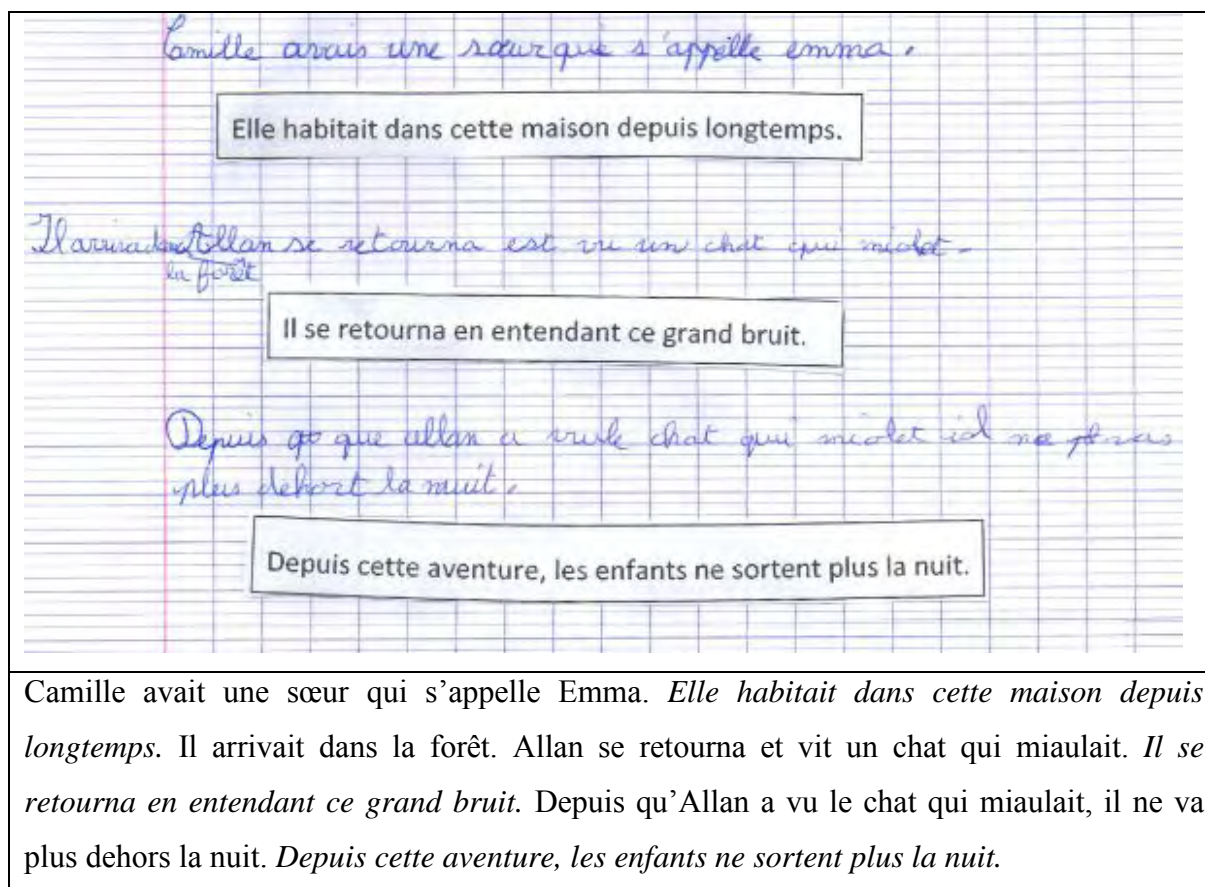 Camille avais une sœur qui s'appelle emma.
Elle habitait dans cette maison depuis longtemps.
Il arriva dans Allan se retourna est vu un chat qui miolet.
la forêt
Il se retourna en entendant ce grand bruit.
Depuis que allan a vu le chat qui miolet il ne
plus dehort la nuit.
Depuis cette aventure, les enfants ne sortent plus la nuit.
Camille avait une sœur qui s’appelle Emma. Elle habitait dans cette maison depuis
longtemps. Il arrivait dans la forêt. Allan se retourna et vit un chat qui miaulait. Il se
retourna en entendant ce grand bruit. Depuis qu’Allan a vu le chat qui miaulait, il ne va
plus dehors la nuit. Depuis cette aventure, les enfants ne sortent plus la nuit.